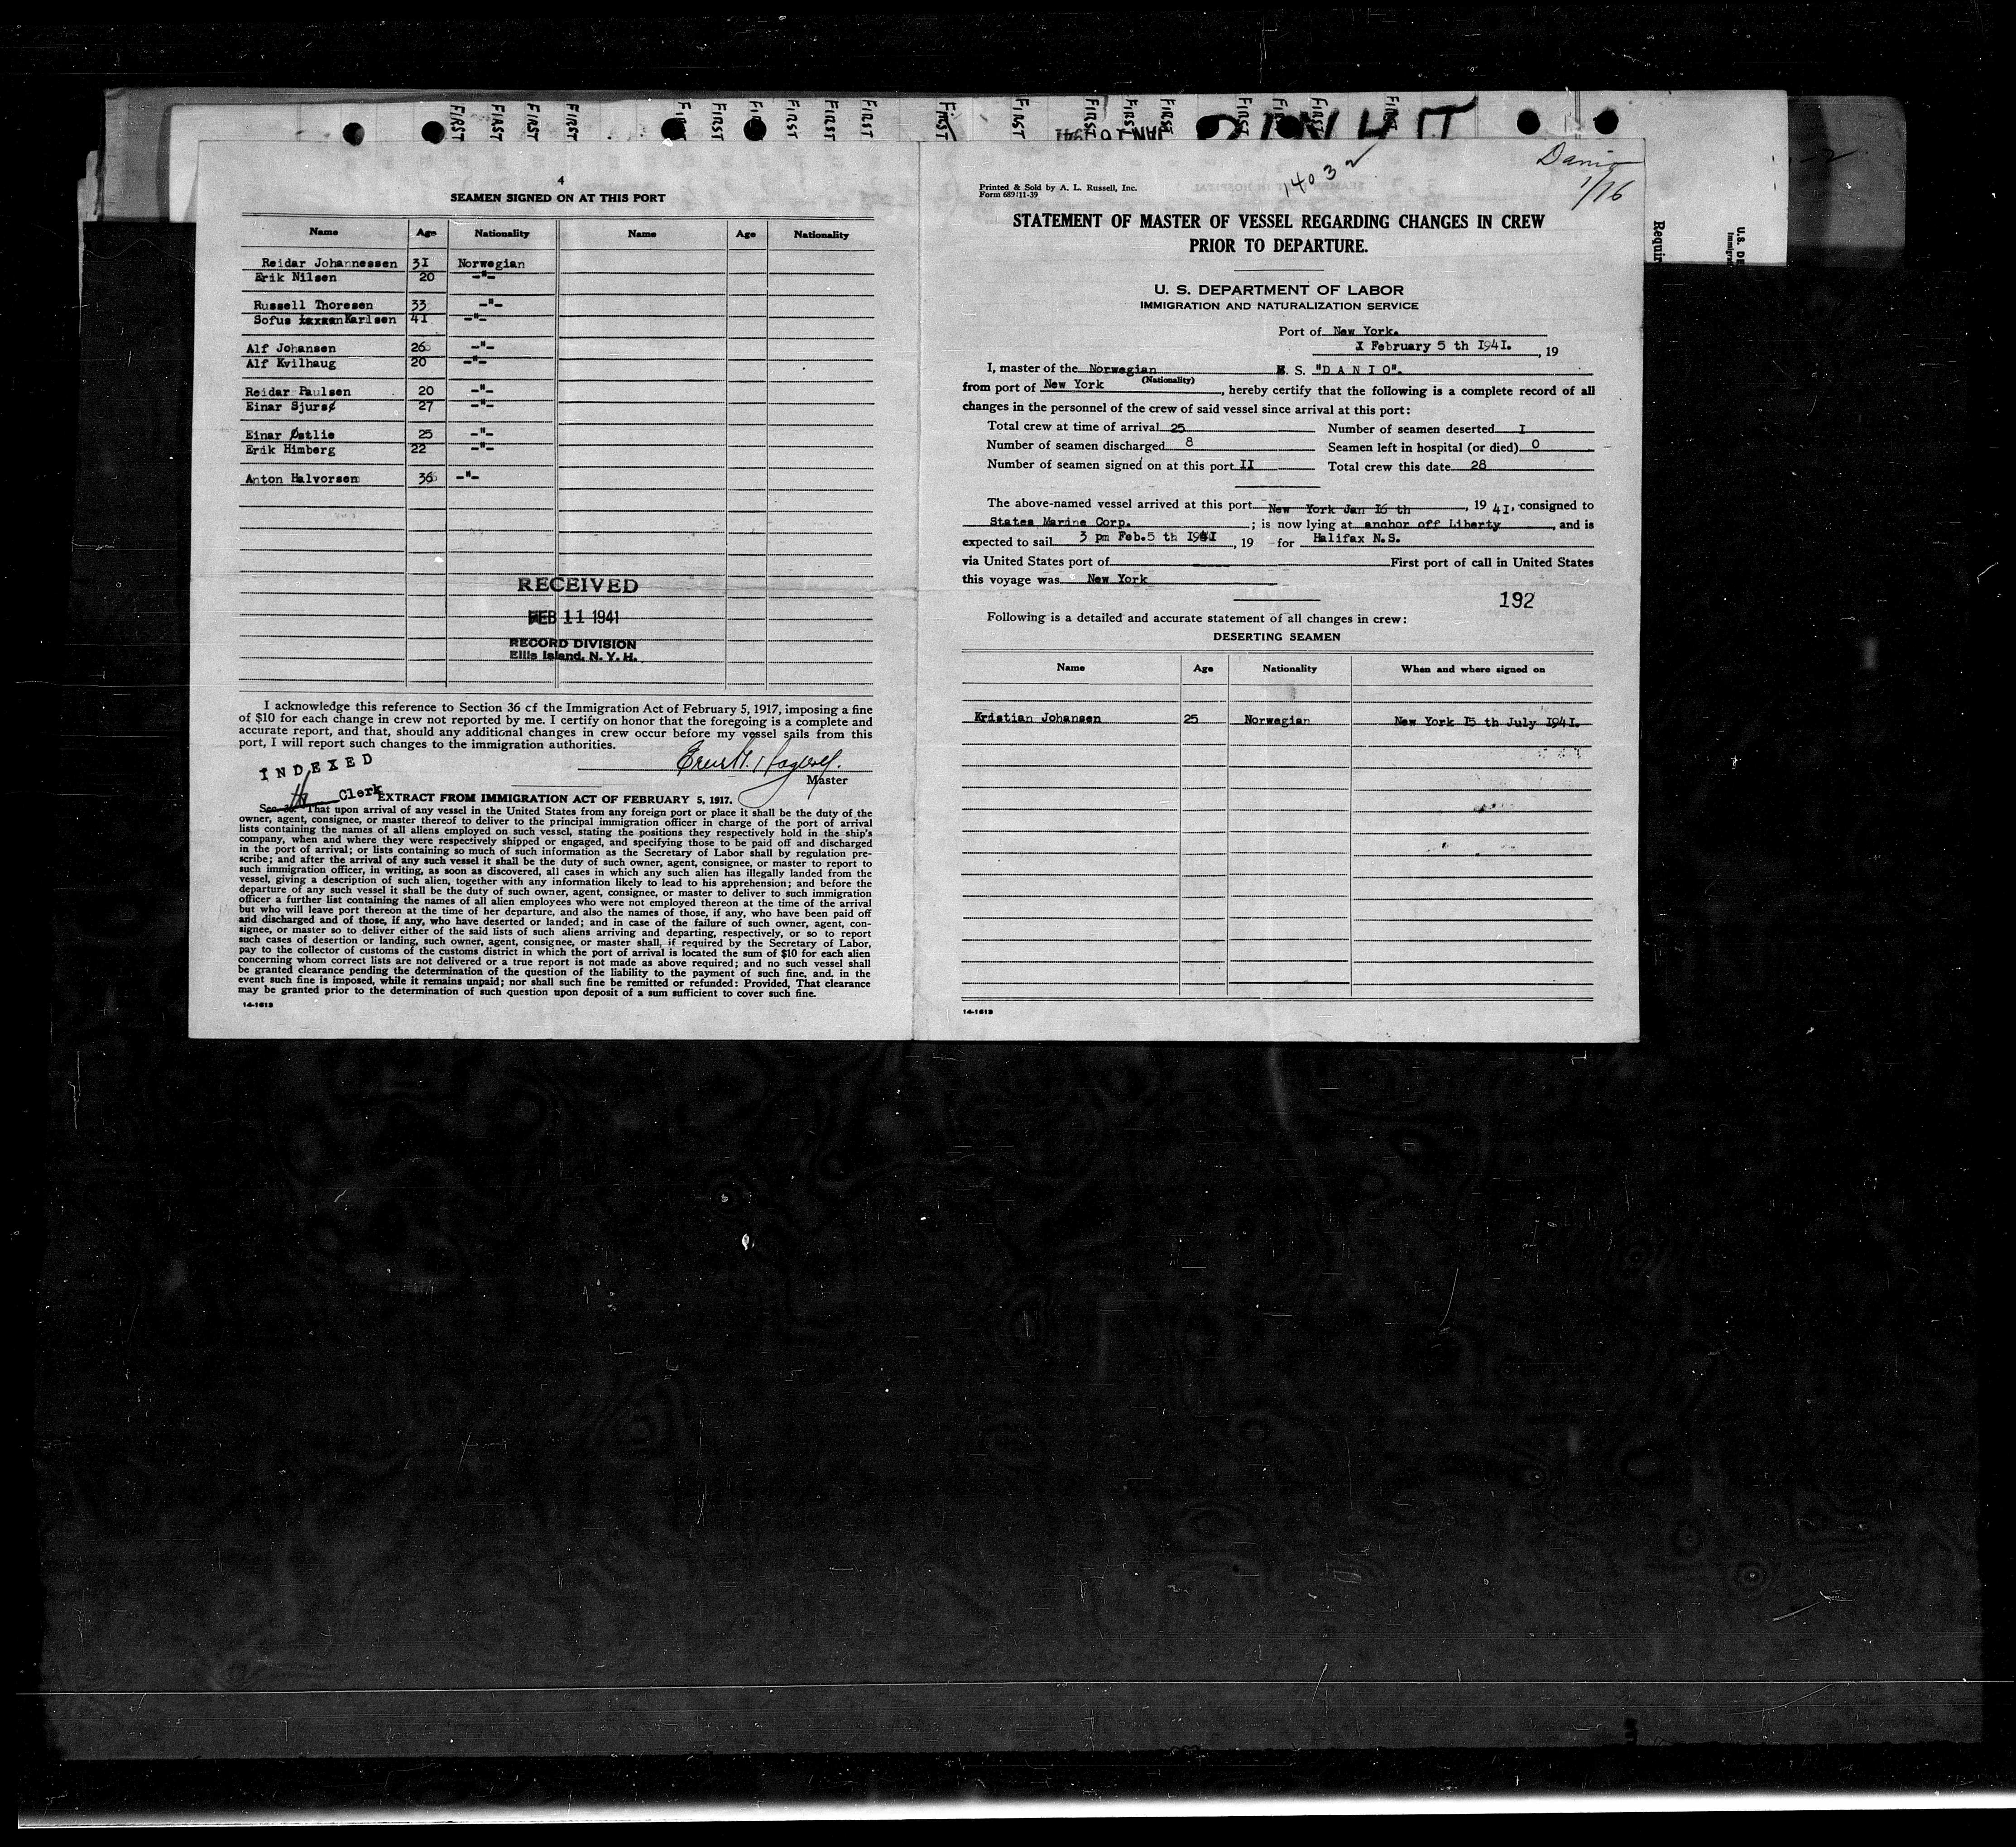 FIRST FIRST FIRST FIRST FIRST FIRST FIRST FIRST FIRST FIRST FIRST FIRST FIRST FIRST FIRST FIRST FIRST FIRST FIRST
JAN 10 1941
4
SEAMEN SIGNED ON AT THIS PORT
Name Age Nationality Name Age Nationality
Reidar Johannessen 31 Norwegian
Erik Nilsen 20 -"-
Russell Thoresen 33 -"-
Sofus Karlsen 41 -"-
Alf Johansen 26 -"-
Alf Kvilhaug 20 -"-
Reidar Paulsen 20 -"-
Einar Sjursø 27 -"-
Einar Østlie 25 -"-
Erik Himberg 22 -"-
Anton Halvorsen 36 -"-
RECEIVED
FEB 11 1941
RECORD DIVISION
Ellis Island, N. Y. H.
I acknowledge this reference to Section 36 of the Immigration Act of February 5, 1917, imposing a fine
of $10 for each change in crew not reported by me. I certify on honor that the foregoing is a complete and
accurate report, and that, should any additional changes in crew occur before my vessel sails from this
port, I will report such changes to the immigration authorities.
Master
INDEXED
Clerk
EXTRACT FROM IMMIGRATION ACT OF FEBRUARY 5, 1917.
Sec. 36. That upon arrival of any vessel in the United States from any foreign port or place it shall be the duty of the
owner, agent, consignee, or master thereof to deliver to the principal immigration officer in charge of the port of arrival
lists containing the names of all aliens employed on such vessel, stating the positions they respectively hold in the ship's
company, when and where they were respectively shipped or engaged, and specifying those to be paid off and discharged
in the port of arrival; or lists containing so much of such information as the Secretary of Labor shall by regulation pre-
scribe; and after the arrival of any such vessel it shall be the duty of such owner, agent, consignee, or master to report to
such immigration officer, in writing, as soon as discovered, all cases in which any such alien has illegally landed from the
vessel, giving a description of such alien, together with any information likely to lead to his apprehension; and before the
departure of any such vessel it shall be the duty of such owner, agent, consignee, or master to deliver to such immigration
officer a further list containing the names of all alien employees who were not employed thereon at the time of the arrival
but who will leave port thereon at the time of her departure, and also the names of those, if any, who have been paid off
and discharged and of those, if any, who have deserted or landed; and in case of the failure of such owner, agent, con-
signee, or master so to deliver either of the said lists of such aliens arriving and departing, respectively, or so to report
such cases of desertion or landing, such owner, agent, consignee, or master shall, if required by the Secretary of Labor,
pay to the collector of customs of the customs district in which the port of arrival is located the sum of $10 for each alien
concerning whom correct lists are not delivered or a true report is not made as above required; and no such vessel shall
be granted clearance pending the determination of the question of the liability to the payment of such fine, and, in the
event such fine is imposed, while it remains unpaid; nor shall such fine be remitted or refunded: Provided, That clearance
may be granted prior to the determination of such question upon deposit of a sum sufficient to cover such fine.
14-1613
Printed & Sold by A. L. Russell, Inc.
Form 689/11-39
14032
Danio
1/16
STATEMENT OF MASTER OF VESSEL REGARDING CHANGES IN CREW
PRIOR TO DEPARTURE.
U. S. DEPARTMENT OF LABOR
IMMIGRATION AND NATURALIZATION SERVICE
Port of New York.
February 5 th 1941. , 19
I, master of the Norwegian S. "D A N I O".
(Nationality)
from port of New York , hereby certify that the following is a complete record of all
changes in the personnel of the crew of said vessel since arrival at this port:
Total crew at time of arrival 25 Number of seamen deserted I
Number of seamen discharged 8 Seamen left in hospital (or died) 0
Number of seamen signed on at this port II Total crew this date 28
The above-named vessel arrived at this port New York Jan 16 th , 19 41, consigned to
States Marine Corp. ; is now lying at anchor off Liberty , and is
expected to sail 3 pm Feb.5 th 1941 , 19 for Halifax N.S.
via United States port of First port of call in United States
this voyage was New York
192
Following is a detailed and accurate statement of all changes in crew:
DESERTING SEAMEN
Name Age Nationality When and where signed on
Kristian Johansen 25 Norwegian New York 15 th July 1941.
14-1613
Requir
U.S. DE
Immigrat